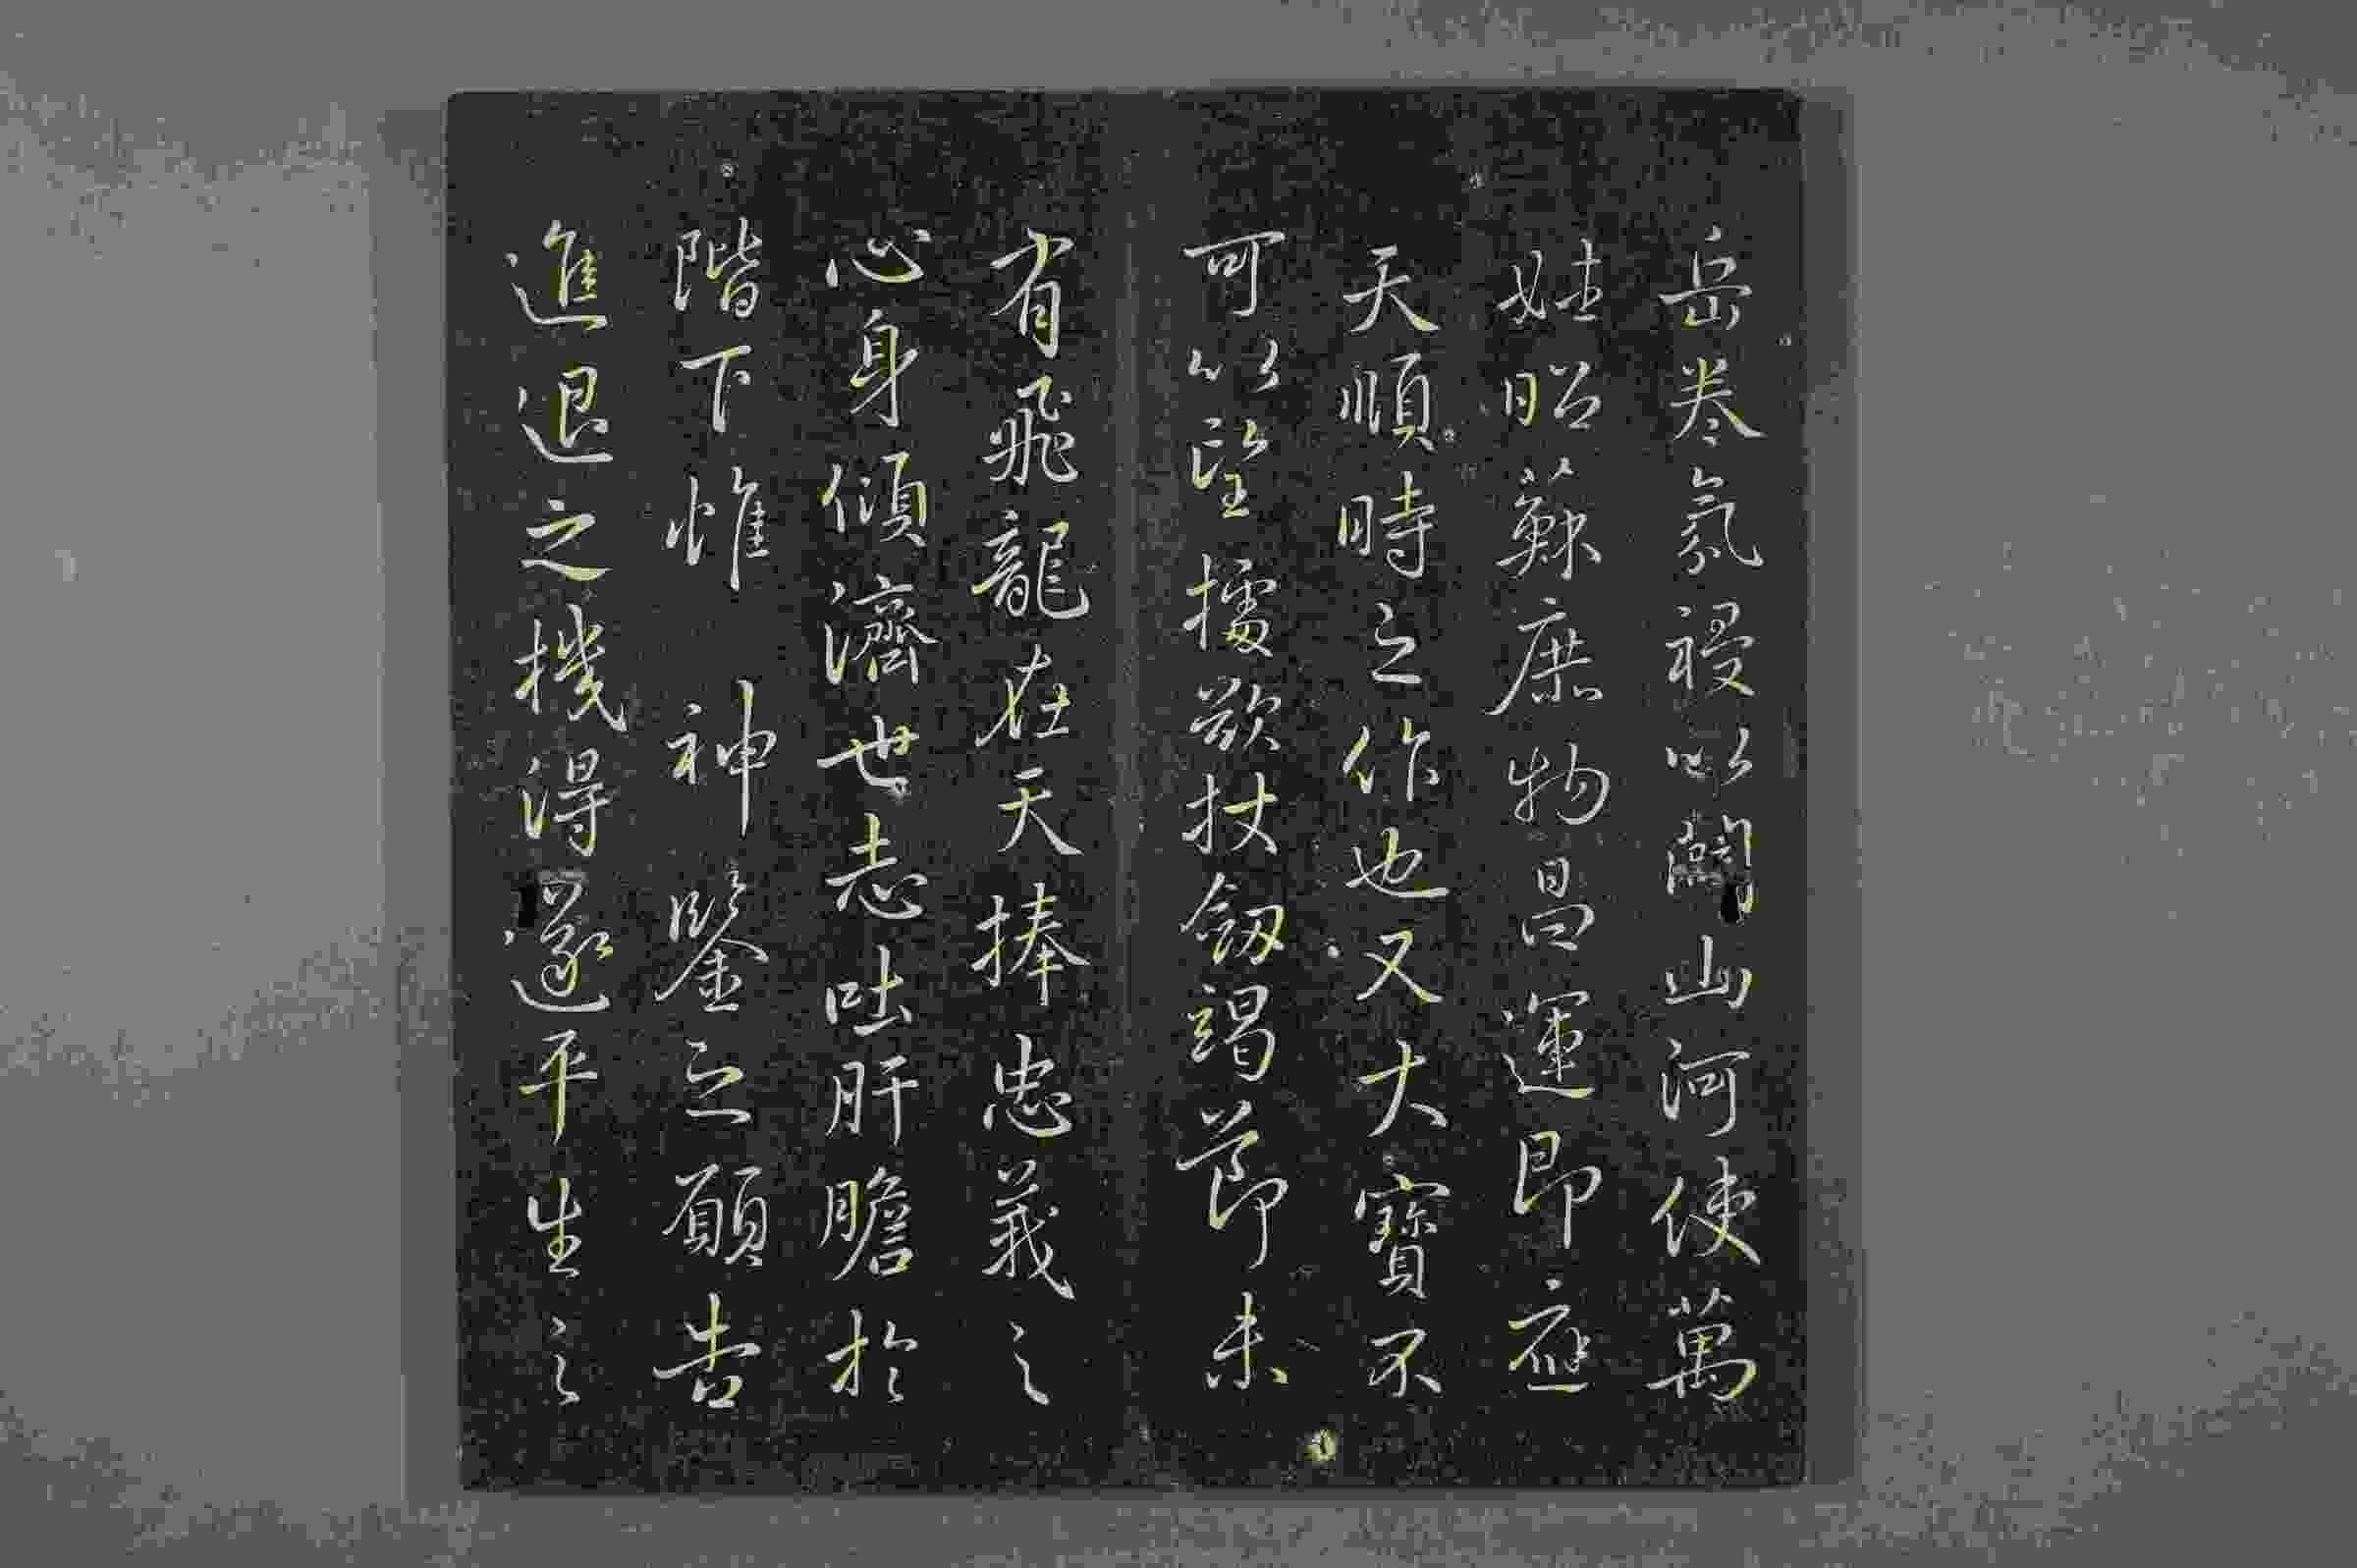 岳卷氛祲以闢山河使萬
姓昭蘇庶物昌運即應
天順時之作也又大寶不
可以望據欲杖劒竭節未
有飛龍在天捧忠義之
心身傾濟世志吐肝膽於
階下惟神鑒之願告
進退之機得遂平生之